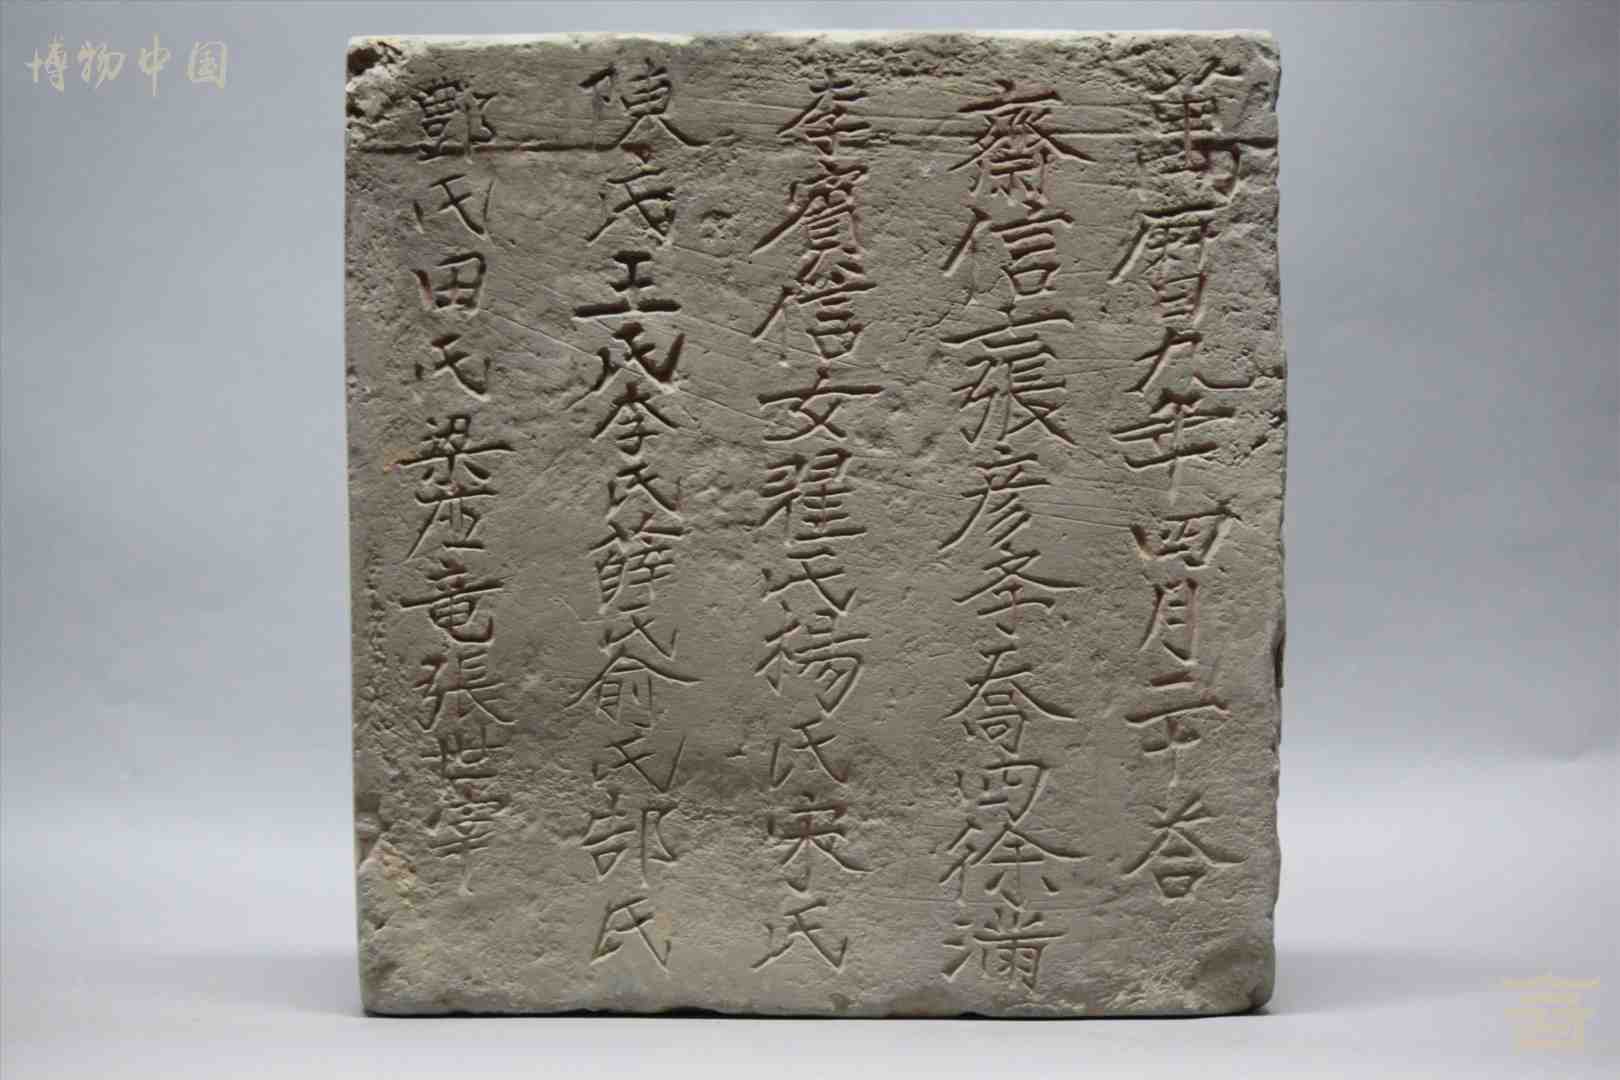 博物中国
萬曆九年四月二十合
齋信士張彦冬喬四徐满
李賓信女翟氏楊氏宋氏
陳氏王氏李氏薛氏俞氏郜氏
鄧氏田氏梁座竜張世宰